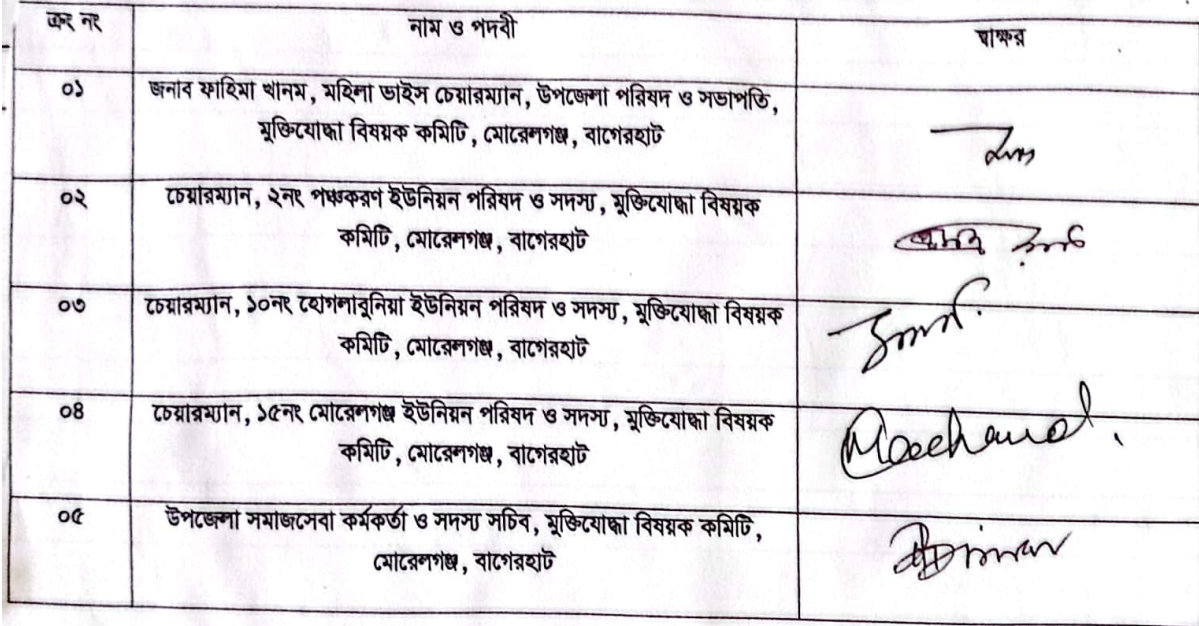 ক্রঃ নং নাম ও পদবী স্বাক্ষর
০১ জনাব ফাহিমা খানম, মহিলা ভাইস চেয়ারম্যান, উপজেলা পরিষদ ও সভাপতি,
মুক্তিযোদ্ধা বিষয়ক কমিটি, মোরেলগঞ্জ, বাগেরহাট
০২ চেয়ারম্যান, ২নং পঞ্চকরণ ইউনিয়ন পরিষদ ও সদস্য, মুক্তিযোদ্ধা বিষয়ক
কমিটি, মোরেলগঞ্জ, বাগেরহাট
০৩ চেয়ারম্যান, ১০নং হোগলাবুনিয়া ইউনিয়ন পরিষদ ও সদস্য, মুক্তিযোদ্ধা বিষয়ক
কমিটি, মোরেলগঞ্জ, বাগেরহাট
০৪ চেয়ারম্যান, ১৫নং মোরেলগঞ্জ ইউনিয়ন পরিষদ ও সদস্য, মুক্তিযোদ্ধা বিষয়ক
কমিটি, মোরেলগঞ্জ, বাগেরহাট
০৫ উপজেলা সমাজসেবা কর্মকর্তা ও সদস্য সচিব, মুক্তিযোদ্ধা বিষয়ক কমিটি,
মোরেলগঞ্জ, বাগেরহাট